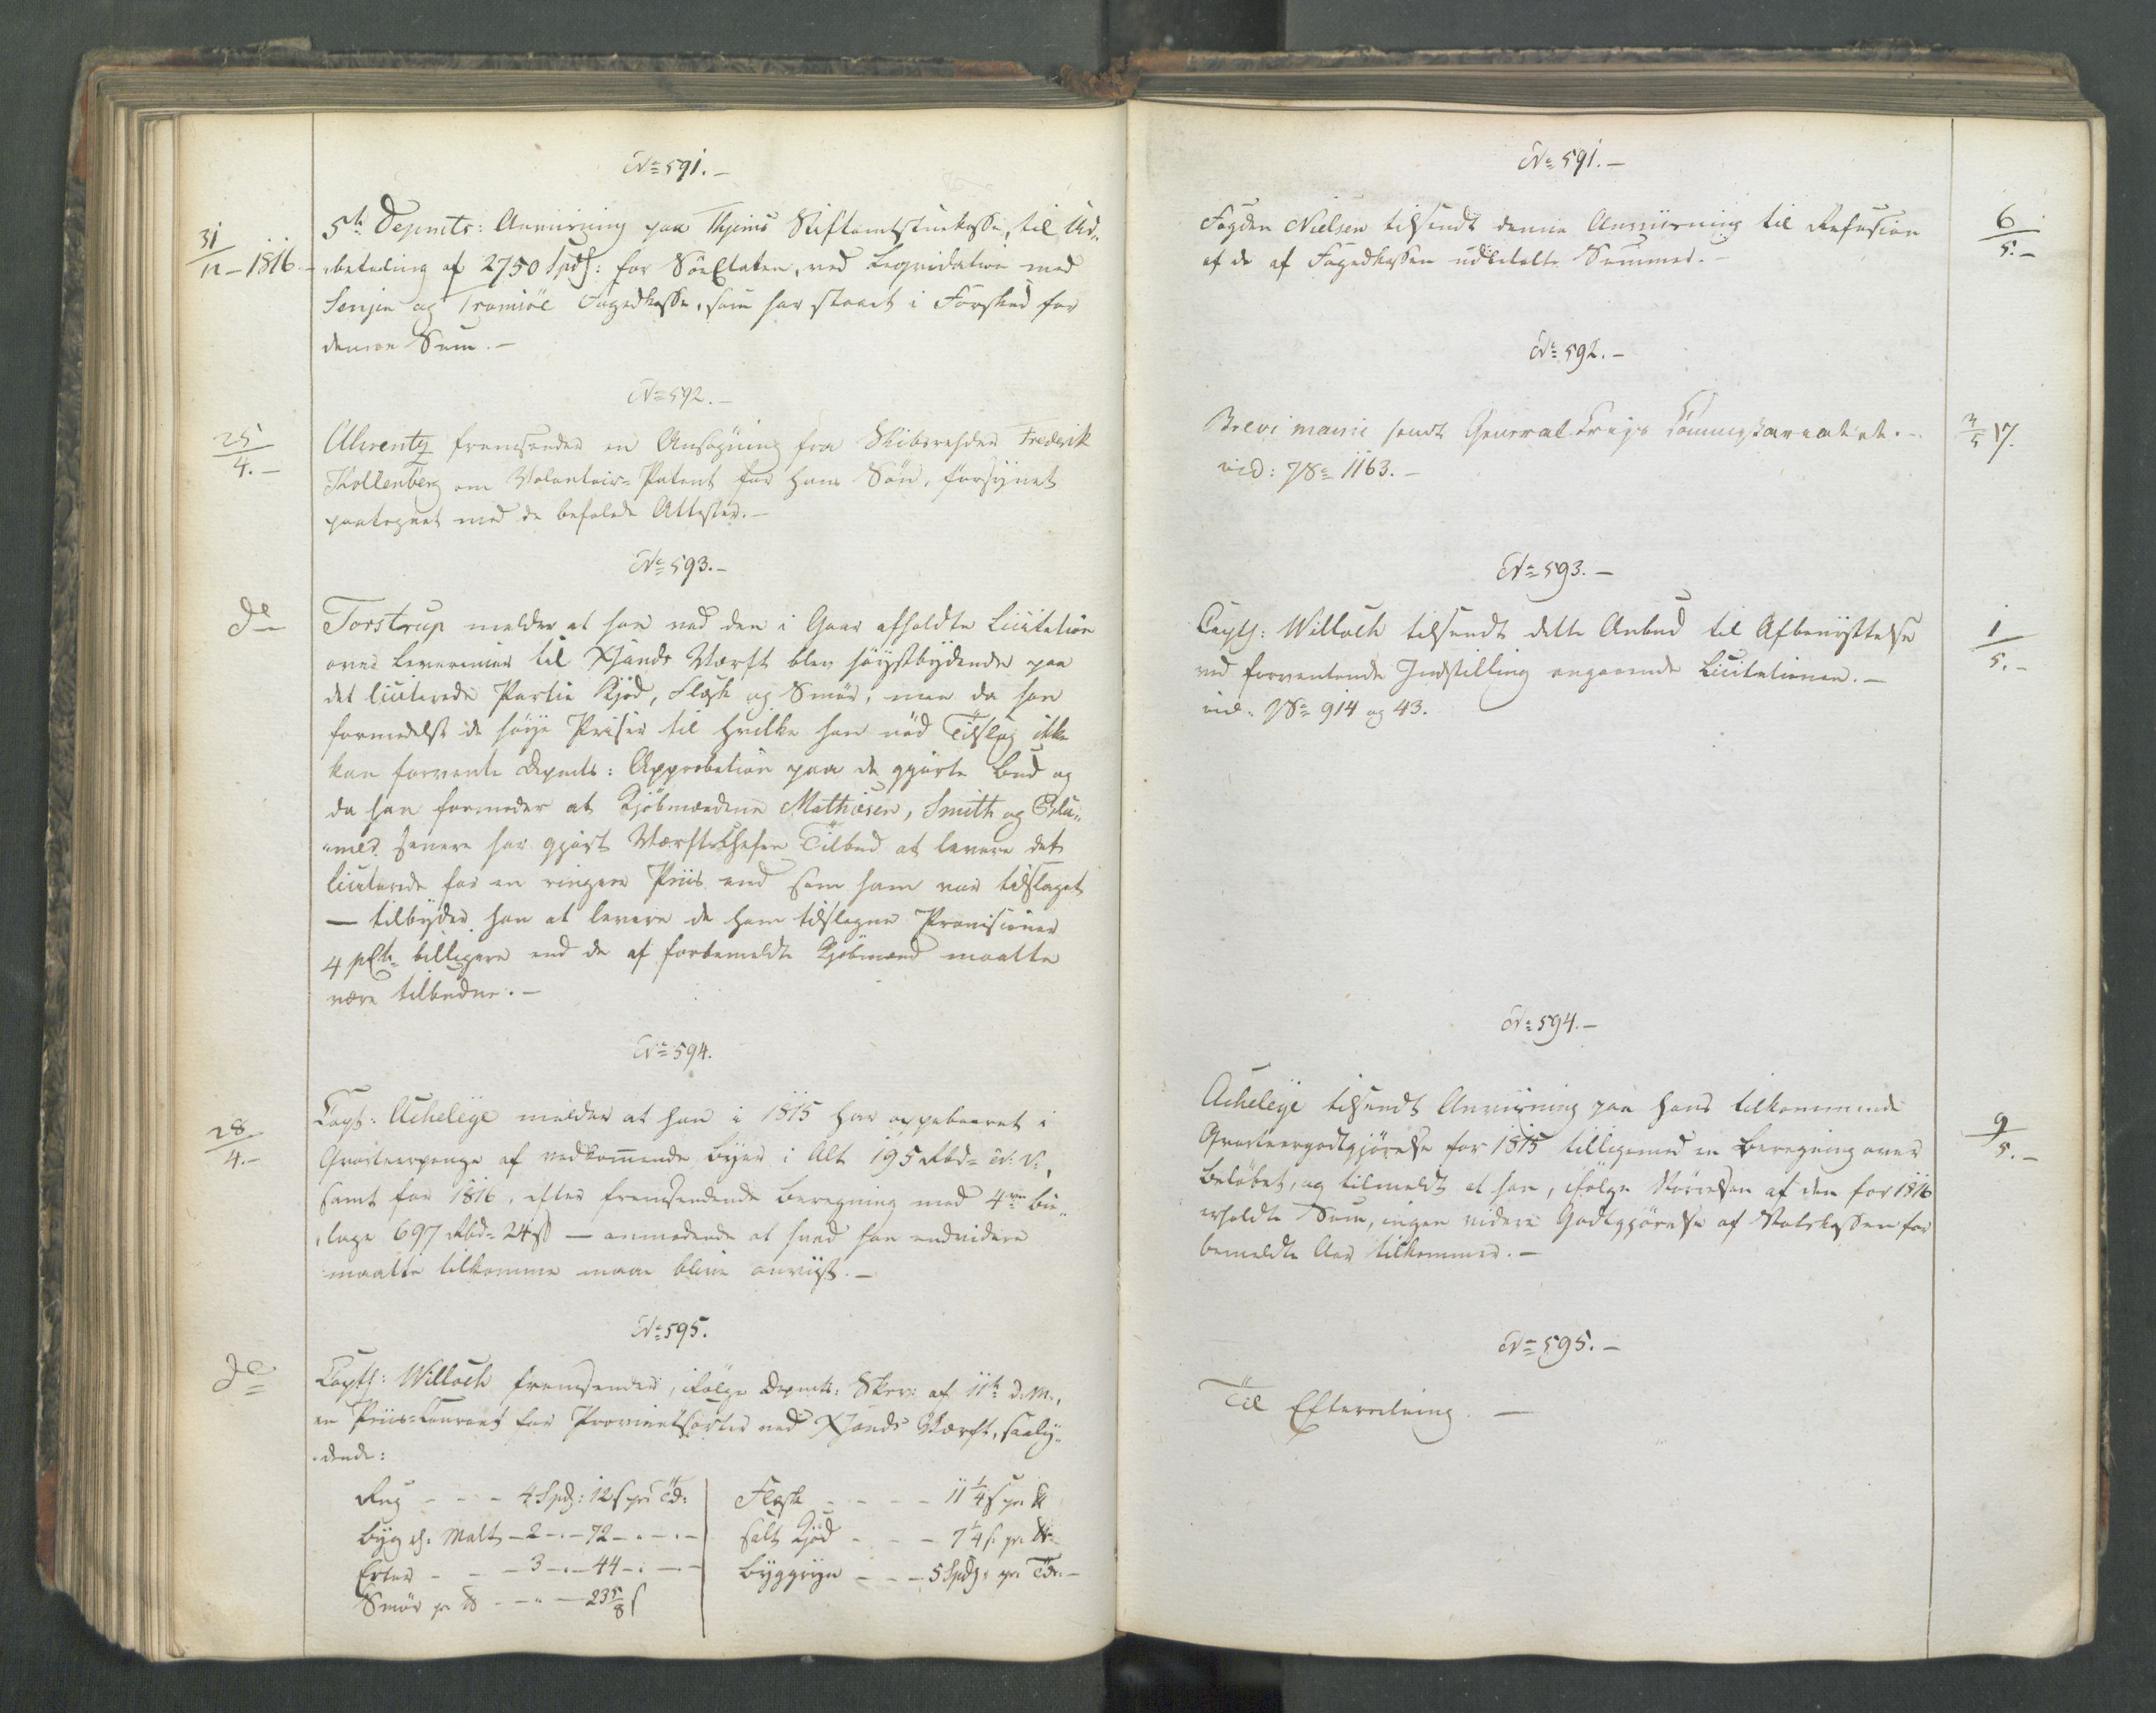 No 591.
31/12 - 1816.
5te Depmts: Anviisning paa Thjems Stiftamtstuekasse, til Ud-
betaling af 2750 Spd: for SöeEtaten, ved Leqvidation med
Senjen og Tromsöe Fogedkasse, som har staaet i Forskud for
denne Sum.-
No 592.-
25/4.-
Ahrentz fremsender en Ansögning fra Skibsrheder Frederik
Kollenberg om Volontair-Patent for hans Sön, forsynet
paategnet med de befalede Attester.-
No 593.-
do
Torstrup melder at han ved den i Gaar afholdte Licitation
over Leverancer til Xsands Værft blev höystbydende paa
det liciterede Partie Kjöd, Flesk og Smör, men da han
formedelst de höye Priser til hvilke han nød Tilslag ikke
kan forvente Depmts: Approbation paa de gjorte Bud og
da han formoder at Kjöbmændene Mathiesen, Smith og
senere har gjort Værftschefen Tilbud at levere det
liciterede for en ringere Priis end som ham var tilslaget
- tilbyder han at levere de ham tilslagne Provisioner
4 pCt. billigere end de af forbemeldte Kjöbmænd maatte
være tilbudne.-
No 594.
28/4.-
Capt: Acheleye melder at han i 1815 har oppebaaret i
Qvarteerpenge af vedkommende Byer i Alt 195 Rbd= N: V:,
samt for 1816, efter fremsendende Beregning med 4re Bi-
lage 697 Rbd= 24 s - anmodende at hvad han endvidere
maatte tilkomme maae blive anviist.-
No 595.
do
Captt: Willoch fremsender, ifölge Depmts: Skr: af 11te d. M.,
en Priis-Courant for Provientsorter ved Xsands Værft, saaly-
dende:
Rug - - - 4 Spd: 12 s pr Td:
Byg el. Malt - 2 - - 72 - - -
Erter - - - 3 - - 44 - - -
Smör pr ℔ - - - 23 5/8 s
Flesk - - - - 11 1/4 s pr. ℔
salt Kjöd - - - 7 1/4 s. pr. ℔
Byggryn - - - 5 Spd: pr. Td.-
No 591.-
Fogden Nielsen tilsendt denne Anviisning til Refusion
af de af Fogedkassen udbetalte Summer.-
6/5.-
No 592.-
Brevi manu sendt General Krigs Commissariatet.-
vid: No 1163.-
3/5 17.
No 593.-
Captt: Willoch tilsendt dette Anbud til Afbenyttelse
ved forventende Indstilling angaaende Licitationen.-
vid: No 914 og 43.
1/5.-
No 594.-
Acheleye tilsendt Anviisning paa hans tilkommende
Qvarteergodtgjörelse for 1815 tilligemed en Beregning over
Belöbet, og tilmeldt at han, ifölge Störrelsen af den for 1816
erholdte Sum, ingen videre Godtgjörelse af Statskassen for
bemeldte Aar tilkommer.-
9/5.-
No 595.-
Til Efterretning. -